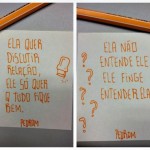 ELA QUER
DISCUTIR
RELAÇÃO,
ELE SÓ QUER
Q TUDO FIQUE
BEM.
PEDROM
ELA NÃO
ENTENDE ELE
ELE FINGE
ENTENDER ELA
PEDROM